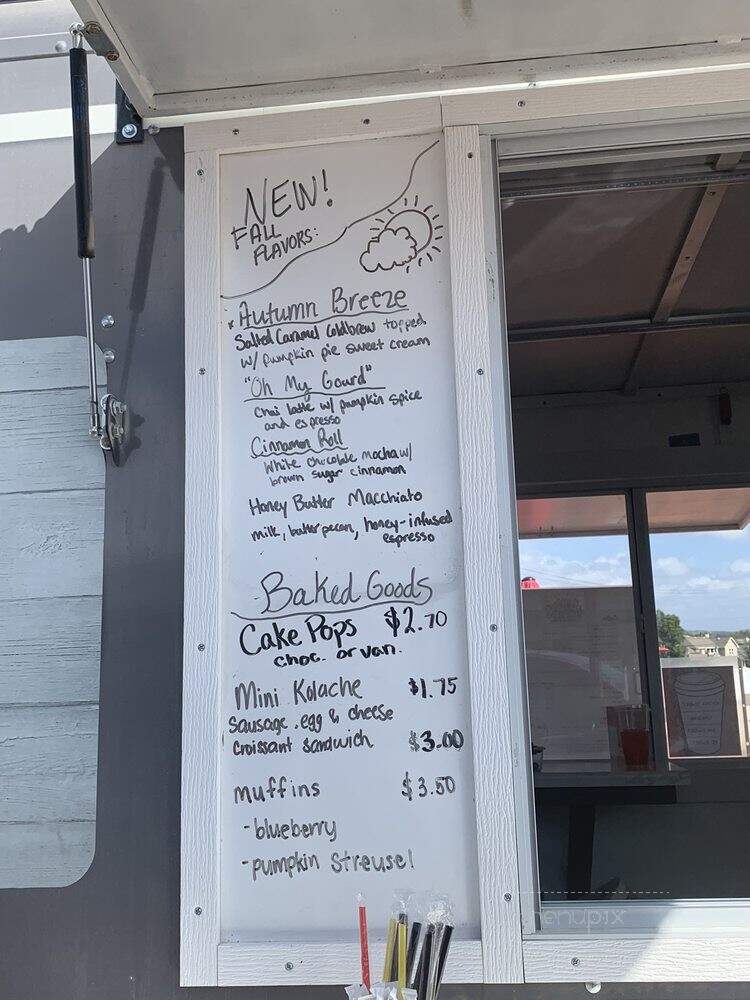 NEW!
FALL
FLAVORS:
* Autumn Breeze
Salted Caramel Coldbrew topped
w/ pumpkin pie sweet cream
"Oh My Gourd"
Chai latte w/ pumpkin spice
and espresso
Cinnamon Roll
White chocolate mocha w/
brown sugar cinnamon
Honey Butter Macchiato
milk, butter pecan, honey-infused
espresso
Baked Goods
Cake Pops $2.70
choc. or van.
Mini Kolache $1.75
Sausage, egg & cheese
Croissant Sandwich $3.00
muffins $3.50
-blueberry
-pumpkin streusel
menupix